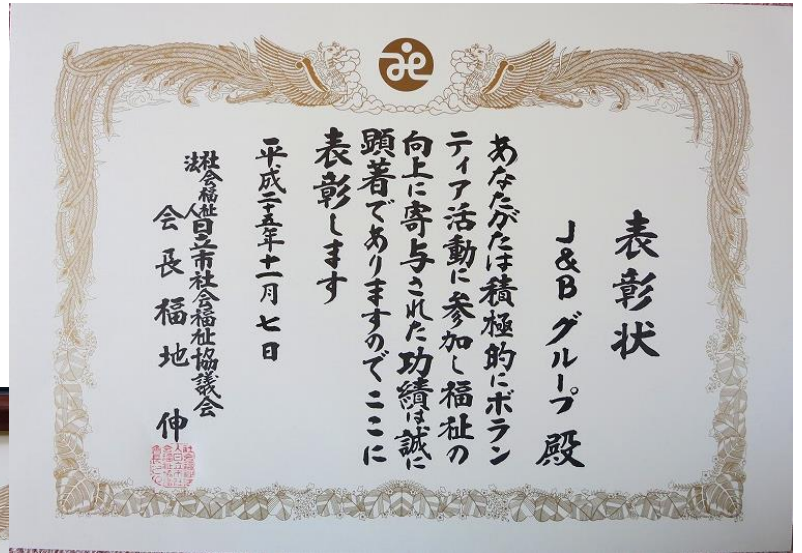 表彰状
J&Bグループ殿
あなたがたは積極的にボラン
ティア活動に参加し福祉の
向上に寄与された功績は誠に
顕著でありますのでここに
表彰します
平成二十五年十一月七日
社会福祉法人日立市社会福祉協議会
会長福地伸